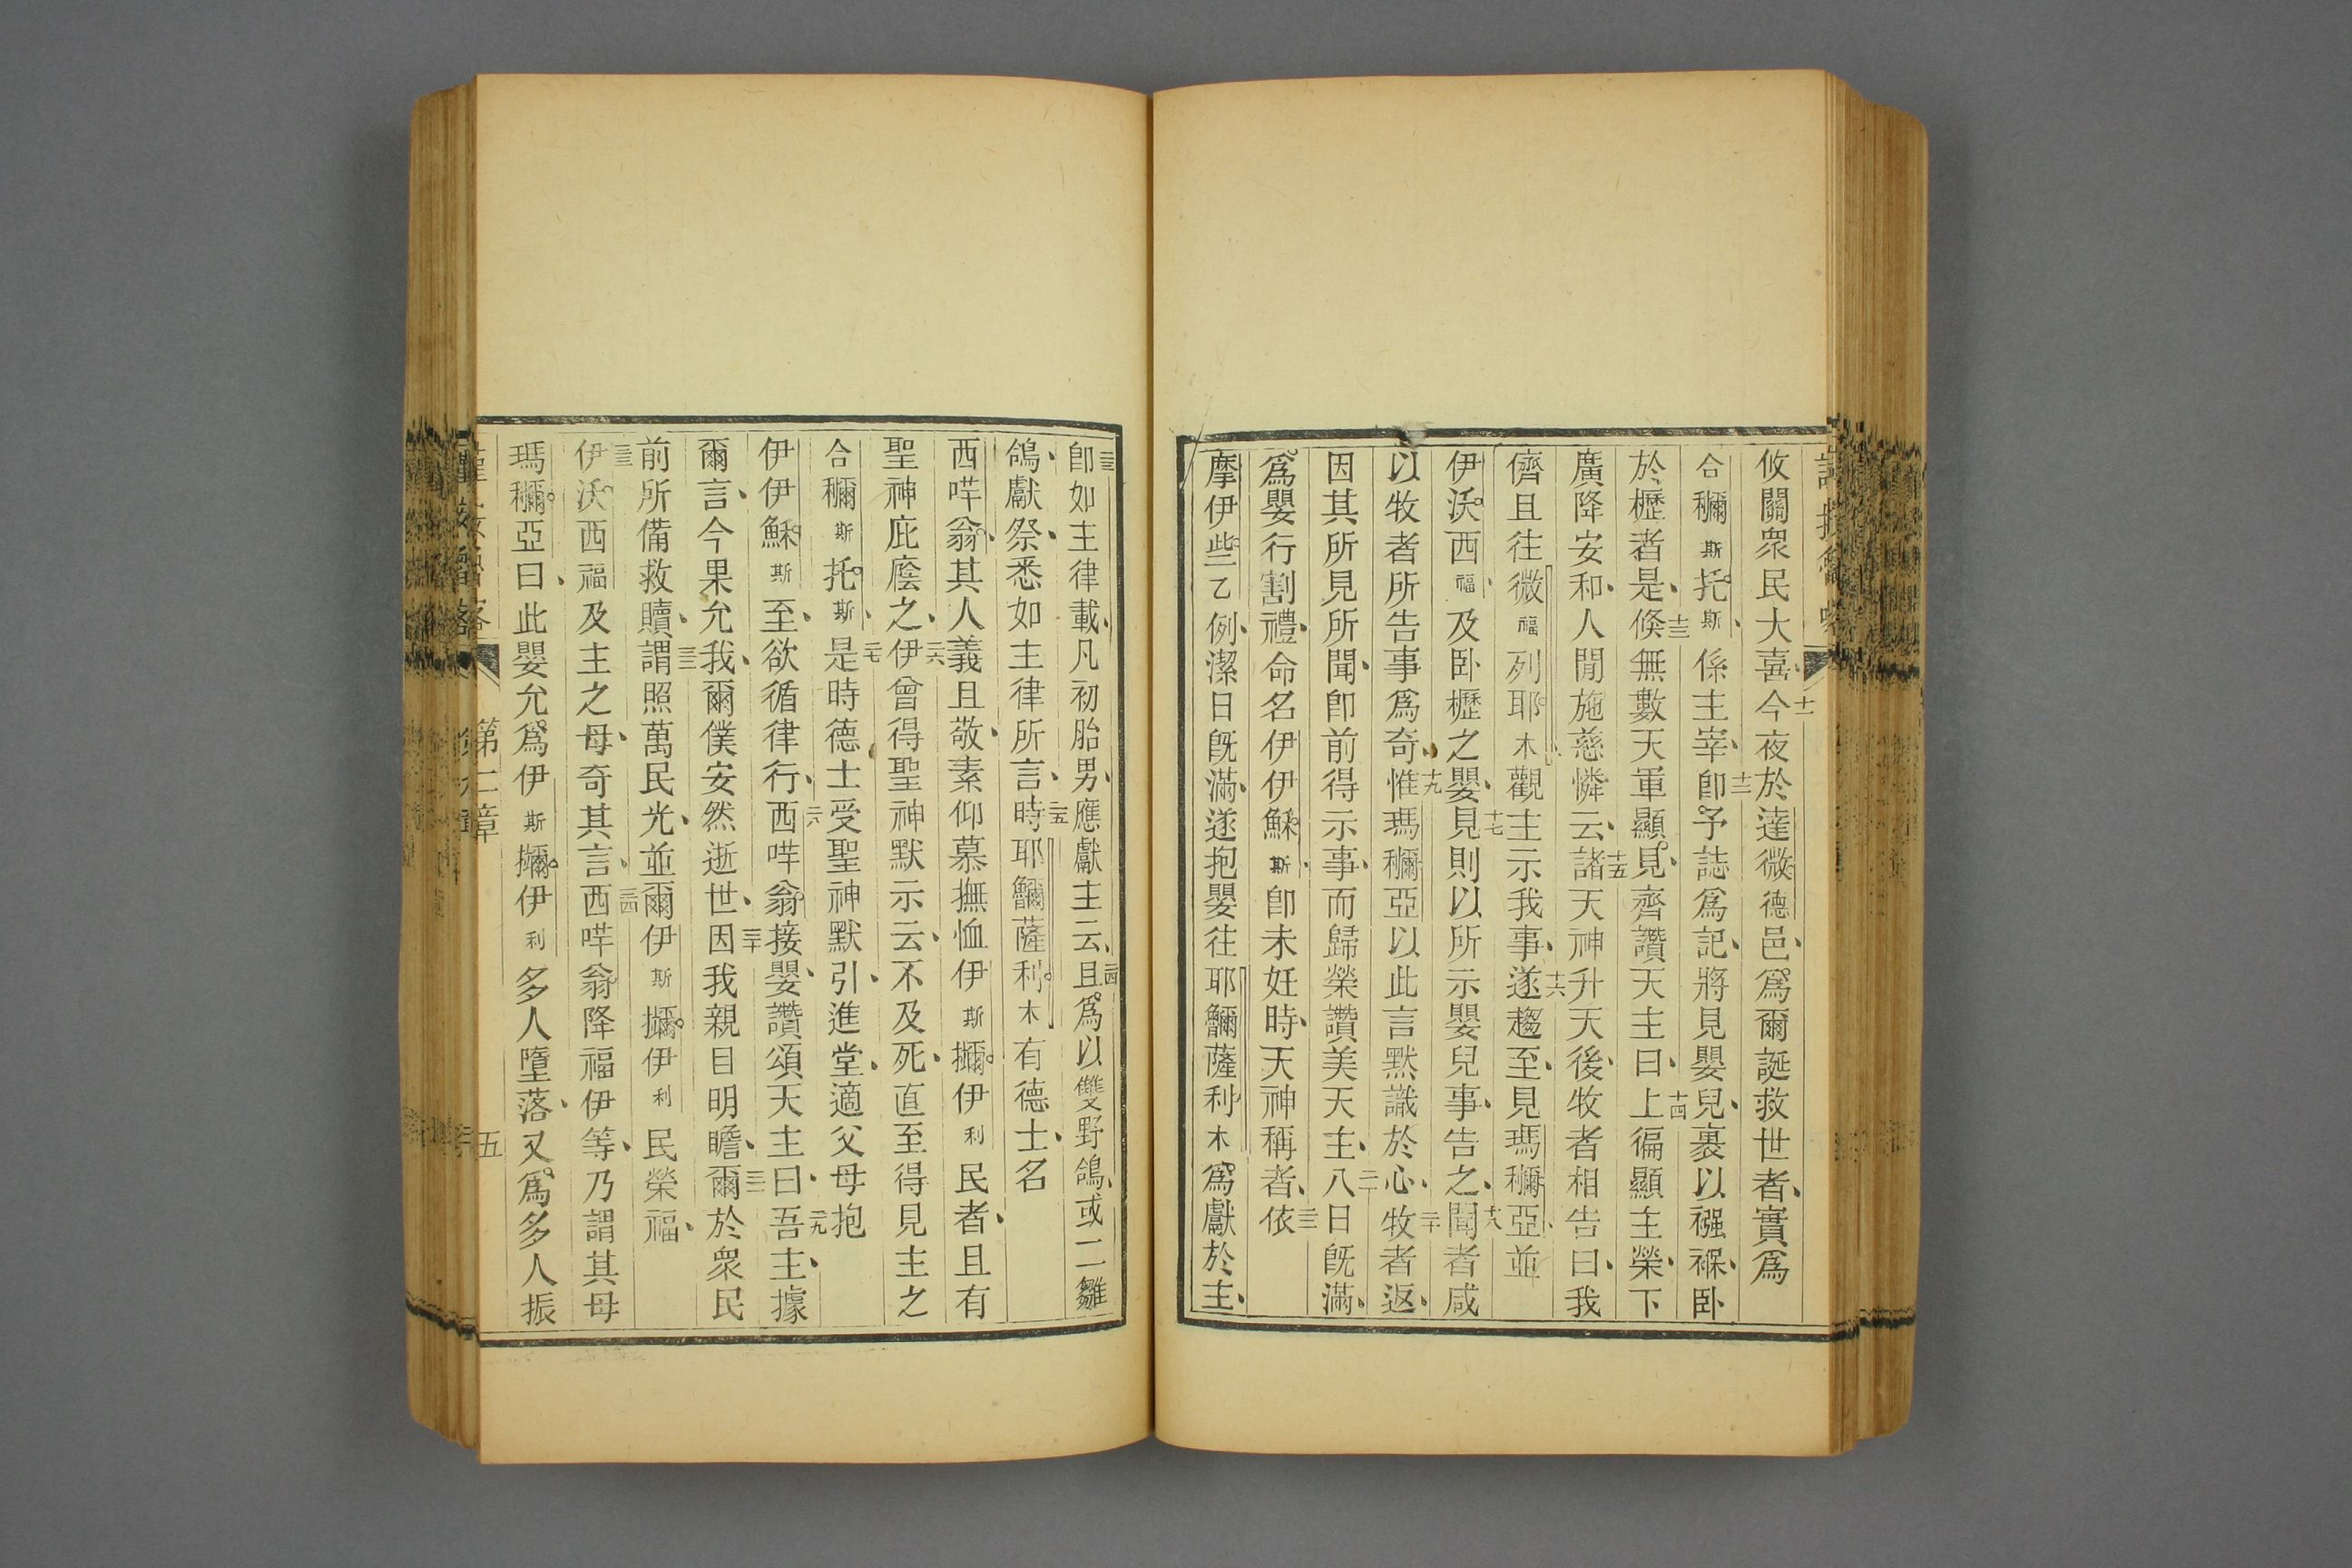 攸關眾民大喜、十一今夜於達微德邑、爲爾誕救世者、實爲
合穪斯托斯、係主宰、十二卽予誌爲記、將見嬰兒、裹以襁褓、卧
於櫪者是、十三倐無數天軍顯見、齊讚天主曰、十四上徧顯主榮、下
廣降安和、人閒施慈憐云、十五諸天神升天後、牧者相告曰、我
儕且往微福列耶木、觀主示我事、十六遂趨至、見瑪穪亞、並
伊沃西福、及卧櫪之嬰、十七見則以所示嬰兒事、告之、十八聞者咸
以牧者所告事爲奇、十九惟瑪穪亞以此言默識於心、二十牧者返、
因其所見所聞、卽前得示事、而歸榮讚美天主、二一八日旣滿、
爲嬰行割禮、命名伊伊穌斯、卽未妊時、天神稱者、二二依
摩伊些乙例、潔日旣滿、遂抱嬰往耶鸙薩利木、爲獻於主、
二三卽如主律載、凡初胎男、應獻主云、二四且爲以雙野鴿、或二雛
鴿、獻祭、悉如主律所言、二五時耶鸙薩利木有德士、名
西哶翁、其人義且敬、素仰慕撫恤伊斯攡伊利民者、且有
聖神庇廕之、二六伊曾得聖神默示云、不及死、直至得見主之
合穪斯托斯、二七是時德士受聖神默引、進堂、適父母抱
伊伊穌斯至、欲循律行、二八西哶翁接嬰、讚頌天主曰、二九吾主、據
爾言、今果允我、爾僕安然逝世、三十因我親目明瞻、三一爾於眾民
前所備救贖、三二謂照萬民光、並爾伊斯攡伊利民榮福、
三三伊沃西福及主之母、奇其言、三四西哶翁降福伊等、乃謂其母
瑪穪亞曰、此嬰允爲伊斯攡伊利多人墮落、又爲多人振
第二章
五